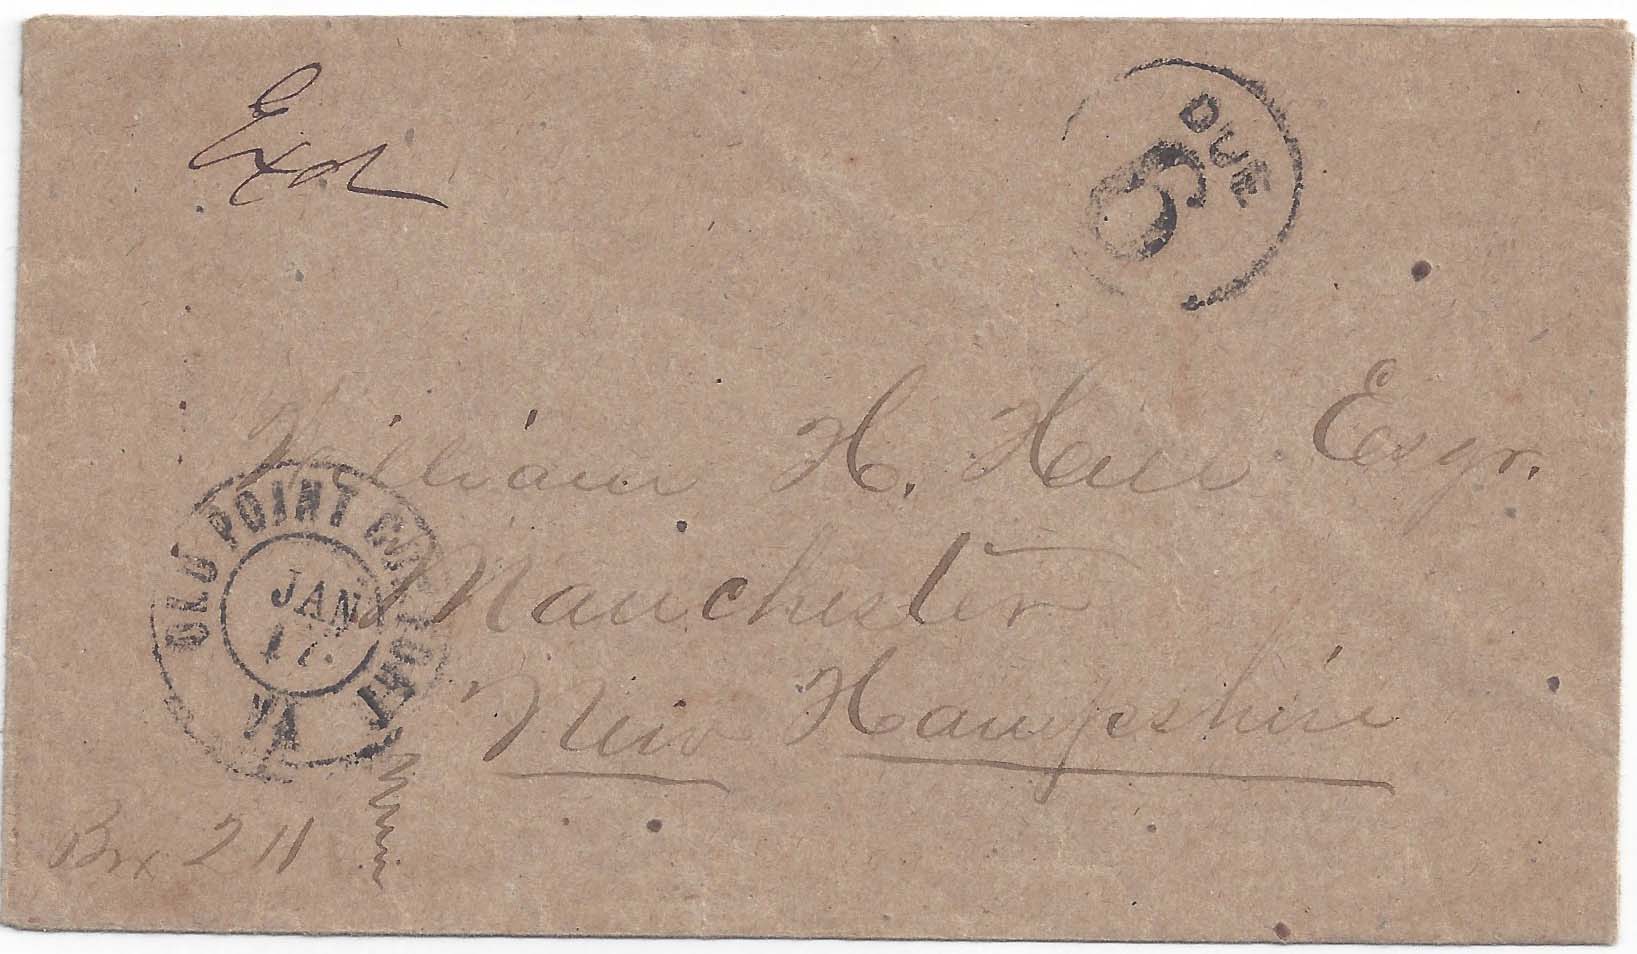 Exd
DUE
6
William H. Hall Esqr.
Manchester
New Hampshire
OLD POINT COMFORT
JAN
17
VA
Box 211